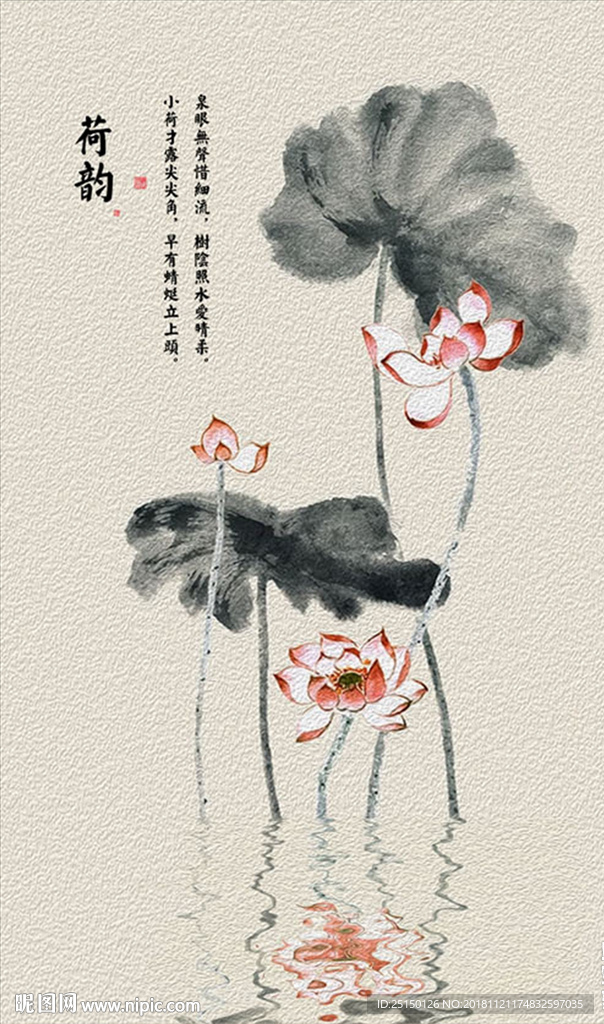 荷韵
泉眼無聲惜細流，樹陰照水愛晴柔。
小荷才露尖尖角，早有蜻蜓立上頭。
昵图网 www.nipic.com
ID:25150126 NO.20181121174832597035